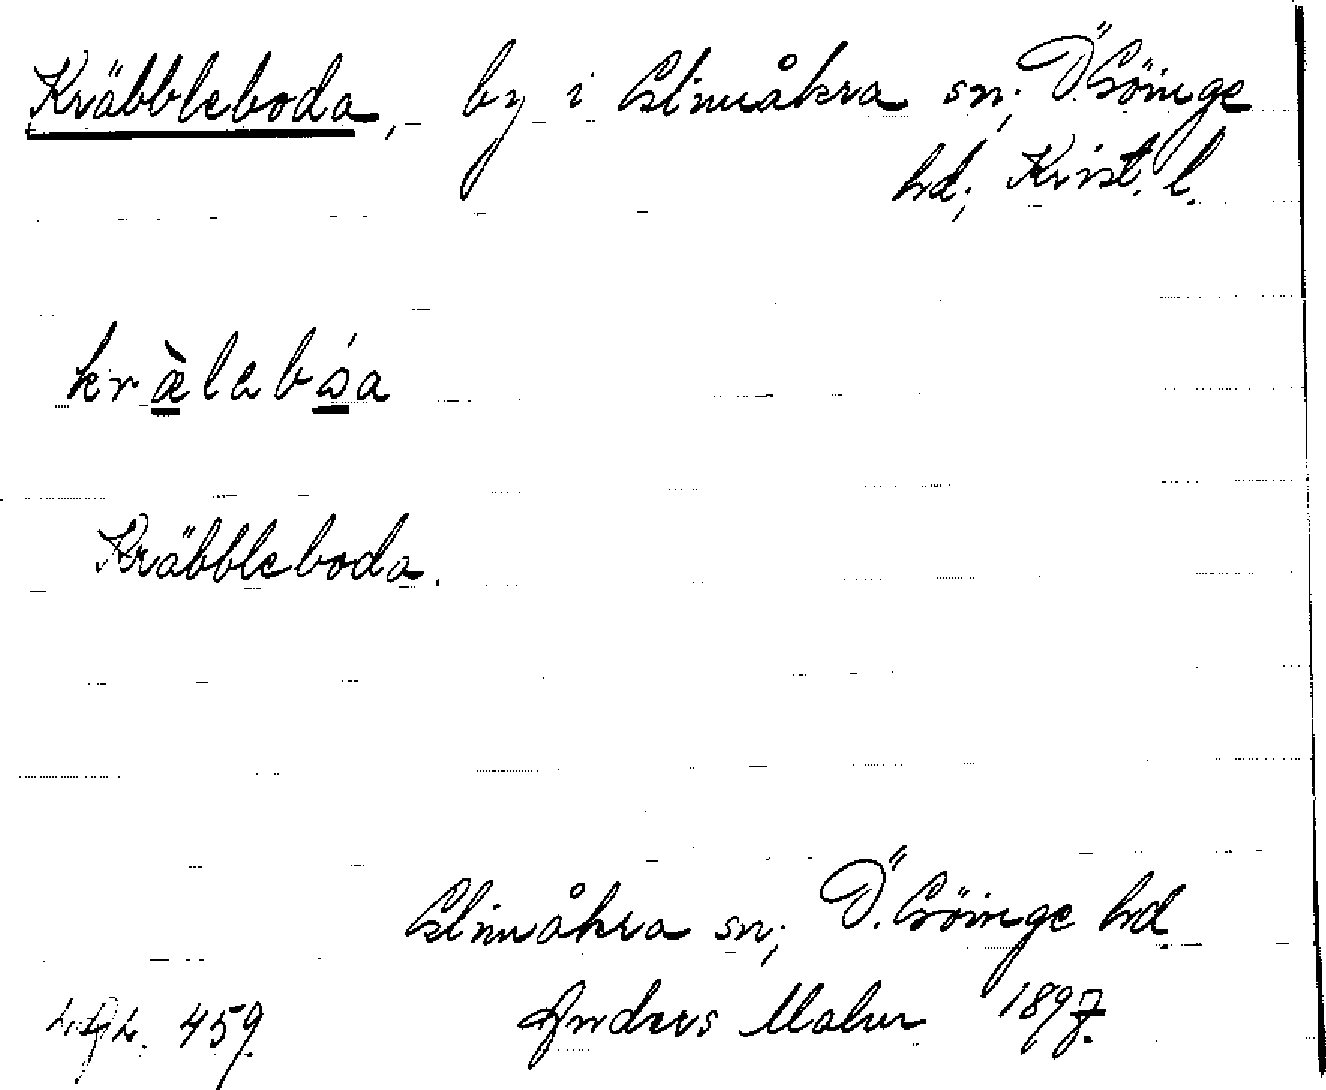 Kräbbleboda, by i Glimåkra sn; Ö. Göinge
hd; Krist. l.
kræ̀labóa
Kräbbleboda.
Glimåkra sn; Ö. Göinge hd
459. Anders Malm 1897.